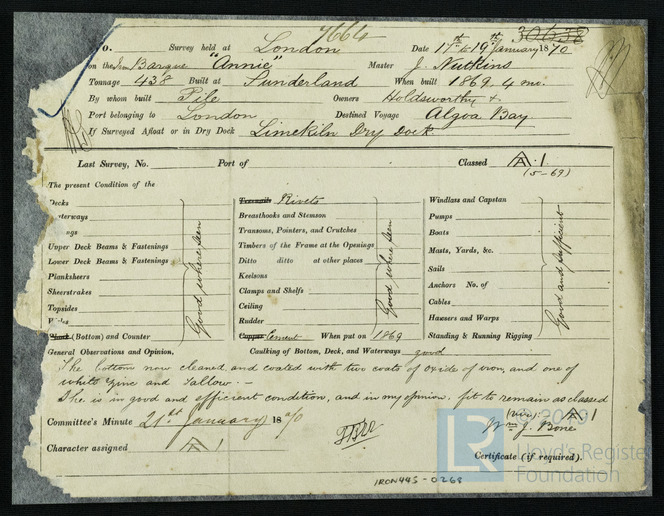 7664
o. Survey held at London Date 17th to 19th January 1870
on the Iron Barque "Annie" Master J. Nutkins
Tonnage 438 Built at Sunderland When built 1869. 4 mo.
By whom built Pile Owners Holdsworthy &
Port belonging to London Destined Voyage Algoa Bay
If Surveyed Afloat or in Dry Dock Limekiln Dry Dock
Last Survey, No. Port of Classed A.1
(5-69)
The present Condition of the
Decks
aterways
ngs
Upper Deck Beams & Fastenings
Lower Deck Beams & Fastenings
Planksheers
Sheerstrakes
Topsides
Wales
(Bottom) and Counter
Good where seen
Treenails Rivets
Breasthooks and Stemson
Transoms, Pointers, and Crutches
Timbers of the Frame at the Openings
Ditto ditto at other places
Keelsons
Clamps and Shelfs
Ceiling
Rudder
Copper Cement When put on 1869
Good where seen
Windlass and Capstan
Pumps
Boats
Masts, Yards, &c.
Sails
Anchors No. of
Cables
Hawsers and Warps
Standing & Running Rigging
Good and sufficient
General Observations and Opinion, Caulking of Bottom, Deck, and Waterways good
The bottom now cleaned and coated with two coats of oxide of iron, and one of
white Zinc and Tallow :-
She is in good and efficient condition, and in my opinion, fit to remain as classed
A.1
Committee's Minute 21st January 1870
Wm J. Bone
Character assigned A 1
Certificate (if required).
IRON445-0268
LR
2019
Lloyd's Register
Foundation